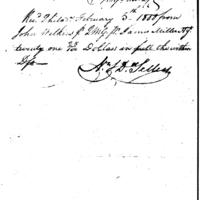 Rec'd Philad'a February 5th 1800 from
John Wilkins Jr QMG Pr James Miller
twenty one Dollars in full the within
N. & D. Sellers